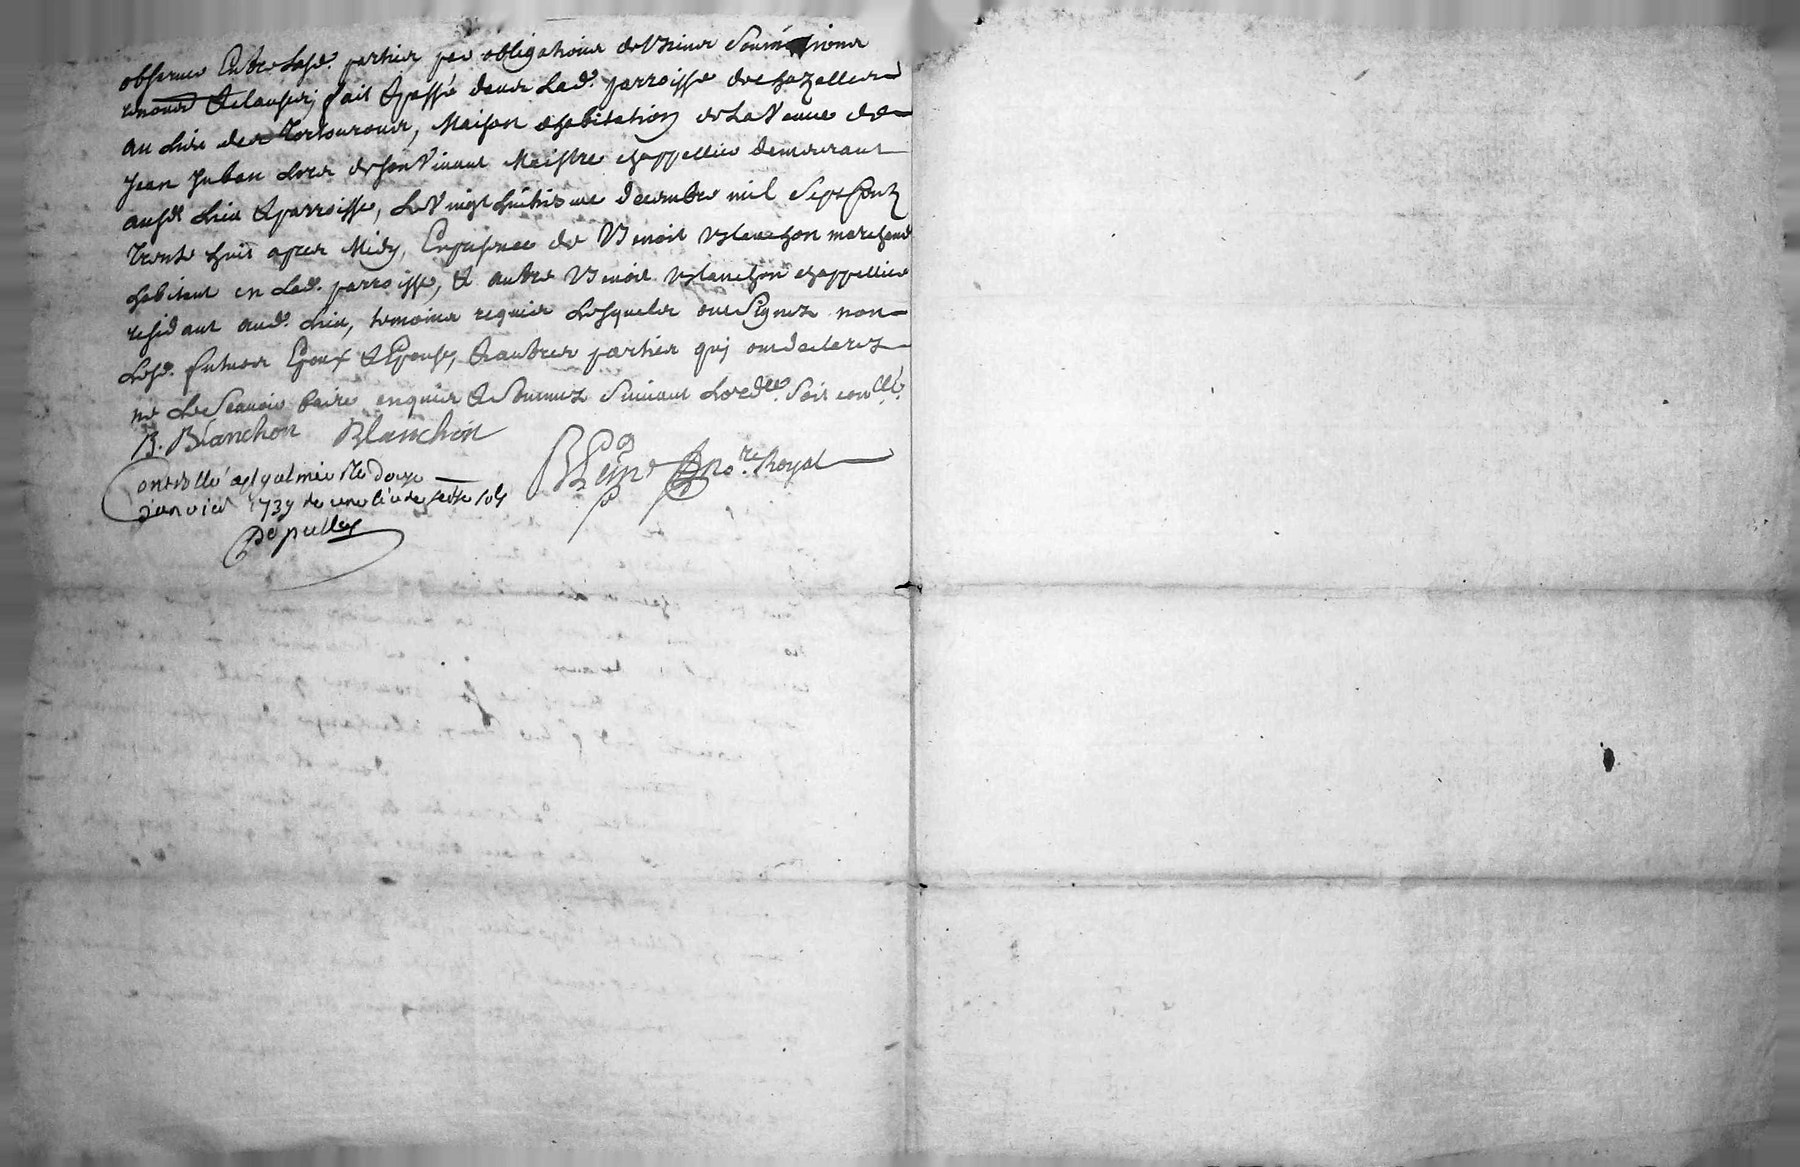 observer Entre Lesd. parties par obligations de biens Soumissions
renonons & clauses; fait & passé dans Lad. parroisse de chazelles
au Lieu des Tortouroux, Maison d'habitation de La Veuve de
Jean Juban Lors de son Vivant Maistre chappellier demeurant
ausd. Lieu & parroisse, Le Vingt huitie me decembre mil Sept Centz
trente huit apres Midy, En presence de Benoit Blanchon marchand
habitant en Lad. parroisse, & autre Benoit Blanchon chappellier
residant aud. Lieu, temoins requis Lesquels ont Signez non
Lesd. futurs Epoux & Epouse, & autres parties qui ont declarez
ne Le Scavoir faire enquis & Sommez Suivant Lord.ce Soit con.llé
B. Blanchon Blanchon
no.re Royal
Controllé a St Galmier le douze
Janvier 1739 Re une livre seise sols